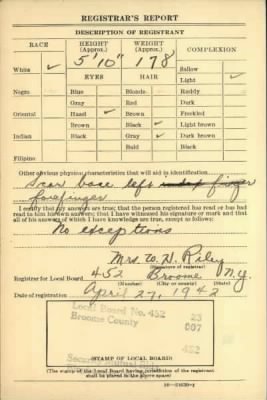 REGISTRAR'S REPORT
DESCRIPTION OF REGISTRANT
RACE HEIGHT (Approx.) WEIGHT (Approx.) COMPLEXION
5'10" 178
White ✓ Sallow
EYES HAIR Light ✓
Negro Blue Blonde Ruddy
Gray Red Dark
Oriental Hazel ✓ Brown Freckled
Brown Black ✓ Light brown
Indian Black Gray ✓ Dark brown
Bald Black
Filipino
Other obvious physical characteristics that will aid in identification
Scar base left index finger
forefinger
I certify that my answers are true; that the person registered has read or has had
read to him his own answers; that I have witnessed his signature or mark and that
all of his answers of which I have knowledge are true, except as follows:
No exceptions
Mrs. W. D. Riley
(Signature of registrar)
Registrar for Local Board 452 Broome N.Y.
(Number) (City or county) (State)
Date of registration April 27, 1942
Local Board No. 452 23
Broome County 007
452
(STAMP OF LOCAL BOARD)
(The stamp of the Local Board having jurisdiction of the registrant
shall be placed in the above space)